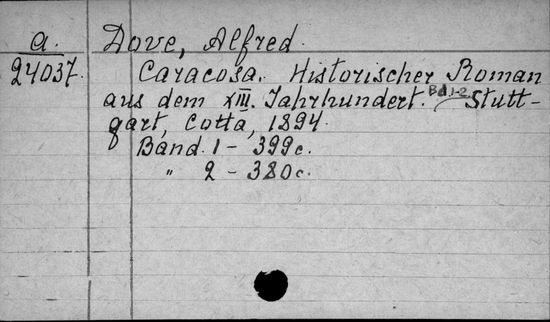 a. Dove, Alfred.
24037. Caracosa. Historischer Roman
aus dem XIII. Jahrhundert. Bd. 1-2 Stutt-
gart, Cotta, 1894.
Band. 1 - 399 c.
" 2 - 380 c.